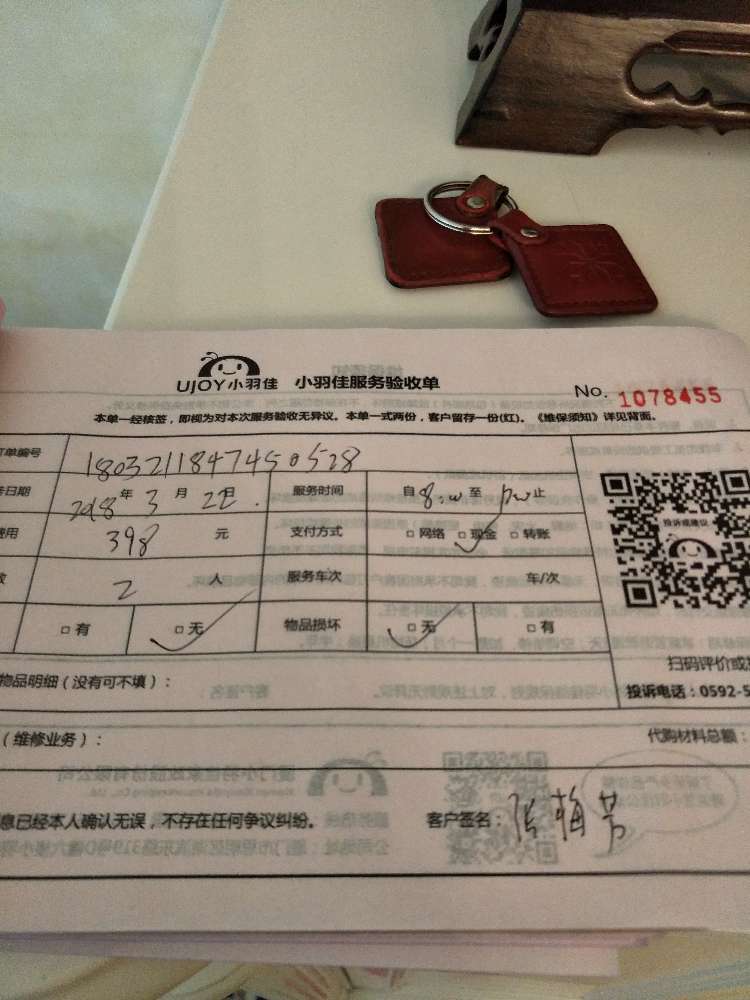 UJOY小羽佳 小羽佳服务验收单 No. 1078455
本单一经核签，即视为对本次服务验收无异议。本单一式两份，客户留存一份(红)。《维保须知》详见背面。
订单编号 1803211847450528
务日期 2018年3月22日 服务时间 自8:00至 止
费用 398 元 支付方式 □网络 □现金 □转账
数 2 人 服务车次 车/次
□有 □无 物品损坏 □无 □有
投诉或建议
扫码评价或
物品明细（没有可不填）： 投诉电话：0592-5
（维修业务）： 代购材料总额：
息已经本人确认无误，不存在任何争议纠纷。 客户签名：张梅芳